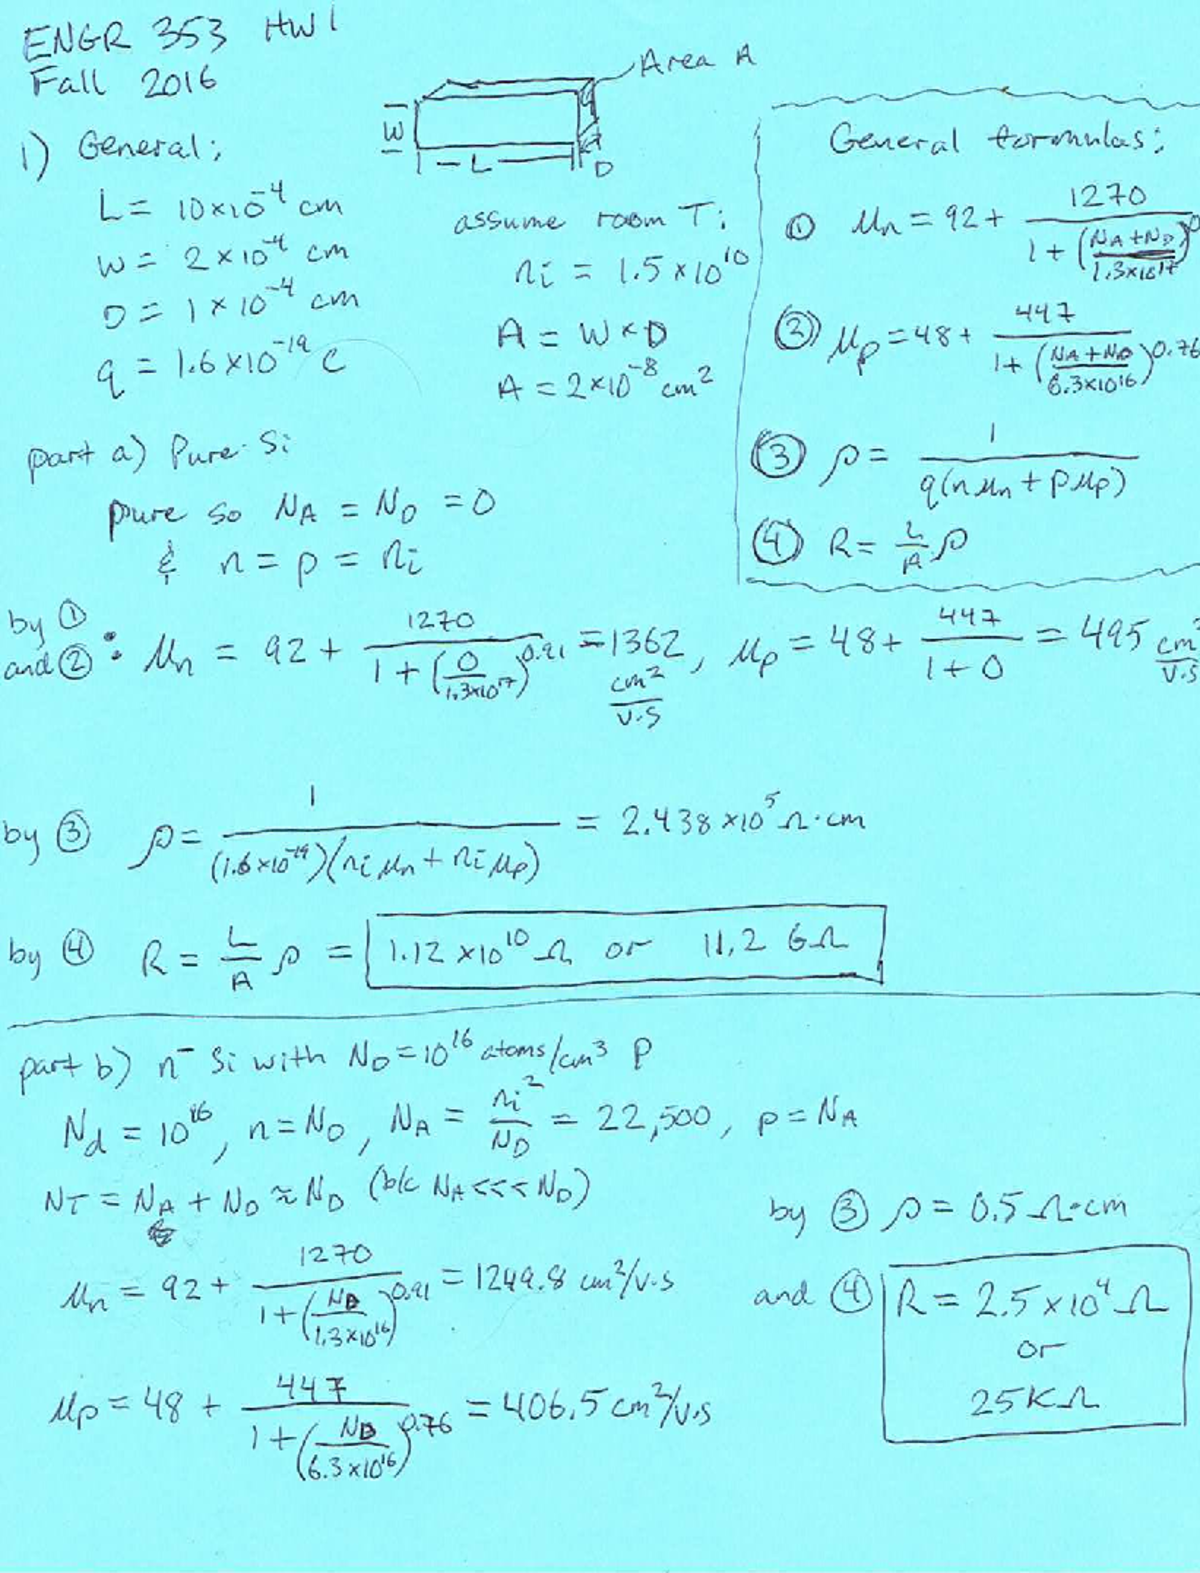 ENGR 353 HW1
Fall 2016
Area A
W
L
D
1) General:
L = 10×10^-4 cm
W = 2×10^-4 cm
D = 1×10^-4 cm
q = 1.6×10^-19 C
assume room T:
ni = 1.5×10^10
A = W×D
A = 2×10^-8 cm^2
General formulas:
① μn = 92 + 1270 / (1 + ((NA+ND)/1.3×10^17)^0
② μp = 48 + 447 / (1 + ((NA+ND)/6.3×10^16)^0.76
③ ρ = 1 / q(nμn + pμp)
④ R = L/A ρ
part a) Pure Si
pure so NA = ND = 0
& n = p = ni
by ① and ②: μn = 92 + 1270 / (1 + (0/1.3×10^17)^0.91) = 1362 cm^2/V·S, μp = 48 + 447 / (1+0) = 495 cm^2/V·S
by ③ ρ = 1 / (1.6×10^-19)(ni μn + ni μp) = 2.438×10^5 Ω·cm
by ④ R = L/A ρ = 1.12×10^10 Ω or 11,2 GΩ
part b) n^- Si with ND = 10^16 atoms/cm^3 P
Nd = 10^16, n = ND, NA = ni^2/ND = 22,500, p = NA
NT = NA + ND ≈ ND (b/c NA <<< ND)
μn = 92 + 1270 / (1 + (ND/1.3×10^16)^0.91) = 1249.8 cm^2/V·S
μp = 48 + 447 / (1 + (ND/6.3×10^16)^0.76) = 406.5 cm^2/V·S
by ③ ρ = 0.5 Ω·cm
and ④ R = 2.5×10^4 Ω
or
25KΩ